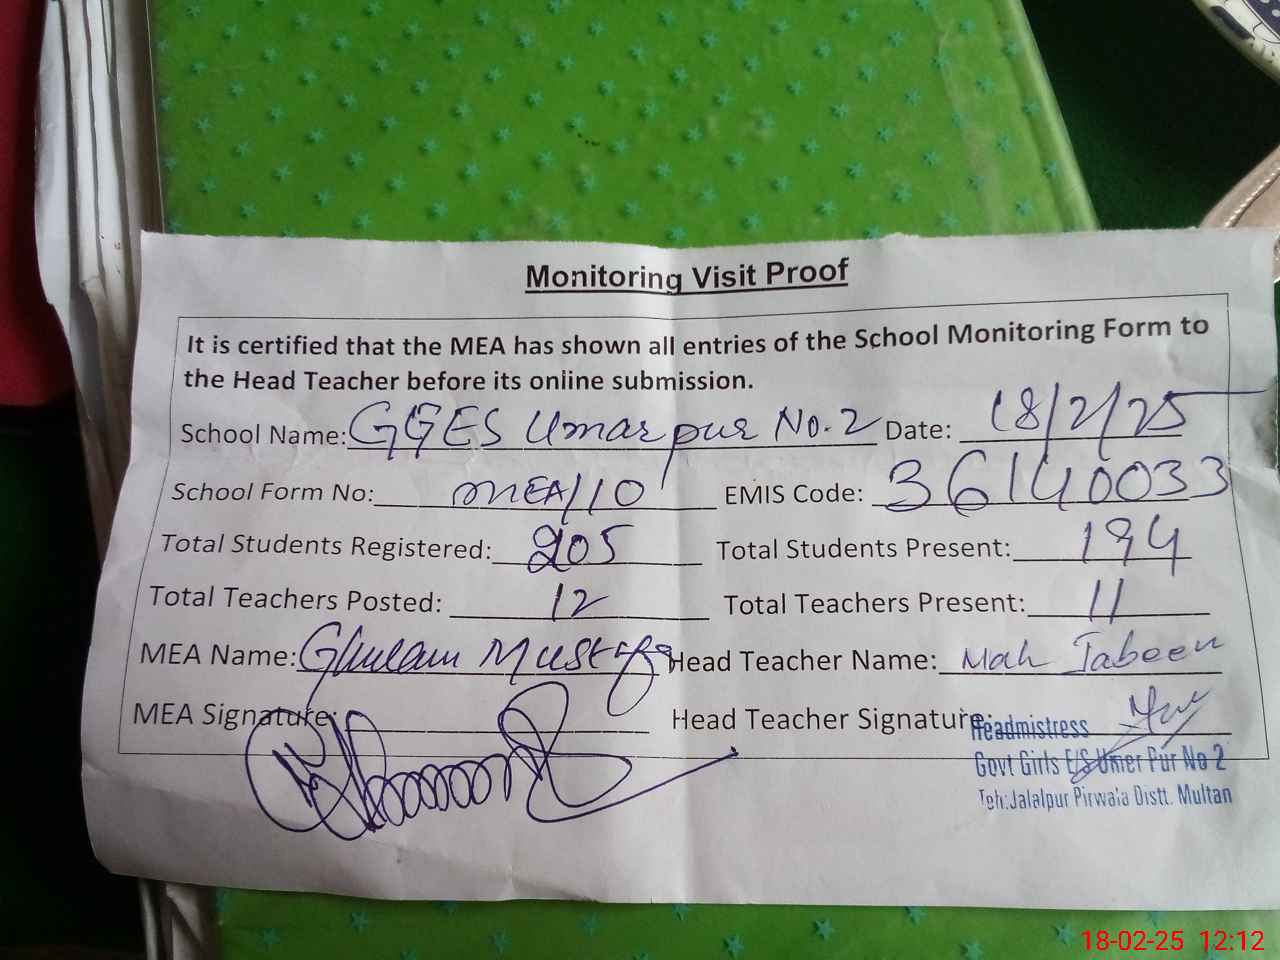 Monitoring Visit Proof
It is certified that the MEA has shown all entries of the School Monitoring Form to
the Head Teacher before its online submission.
School Name: GGES Umar pur No.2 Date: 18/2/25
School Form No: MEA/10 EMIS Code: 36140033
Total Students Registered: 205 Total Students Present: 194
Total Teachers Posted: 12 Total Teachers Present: 11
MEA Name: Ghulam Mustafa Head Teacher Name: Mah Jabeen
MEA Signature: Head Teacher Signature:
Headmistress
Govt Girls E/S Umer Pur No 2
Teh:Jalalpur Pirwala Distt. Multan
18-02-25 12:12